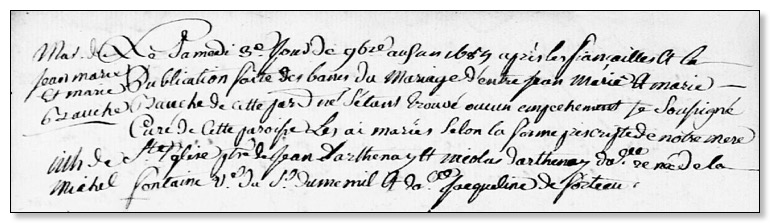 Mar. de Le Samedi 3e Jour de 9bre aud. an 1685 après les fiançailles Et la
jean marie Publication faite des bancs du Mariage d'entre jean Marie Et marie
Et marie Gauche de cette par. ne s'étant trouvé aucun empechement Je Soussigné
Gauche Curé de Cette paroisse Les ai mariés Selon la forme prescripte de notre mere
Ste Eglise pnce de Jean Darthenay Et nicolas darthenay de la
Michel fontaine du Sr. Dumenil Et da. Jacqueline de